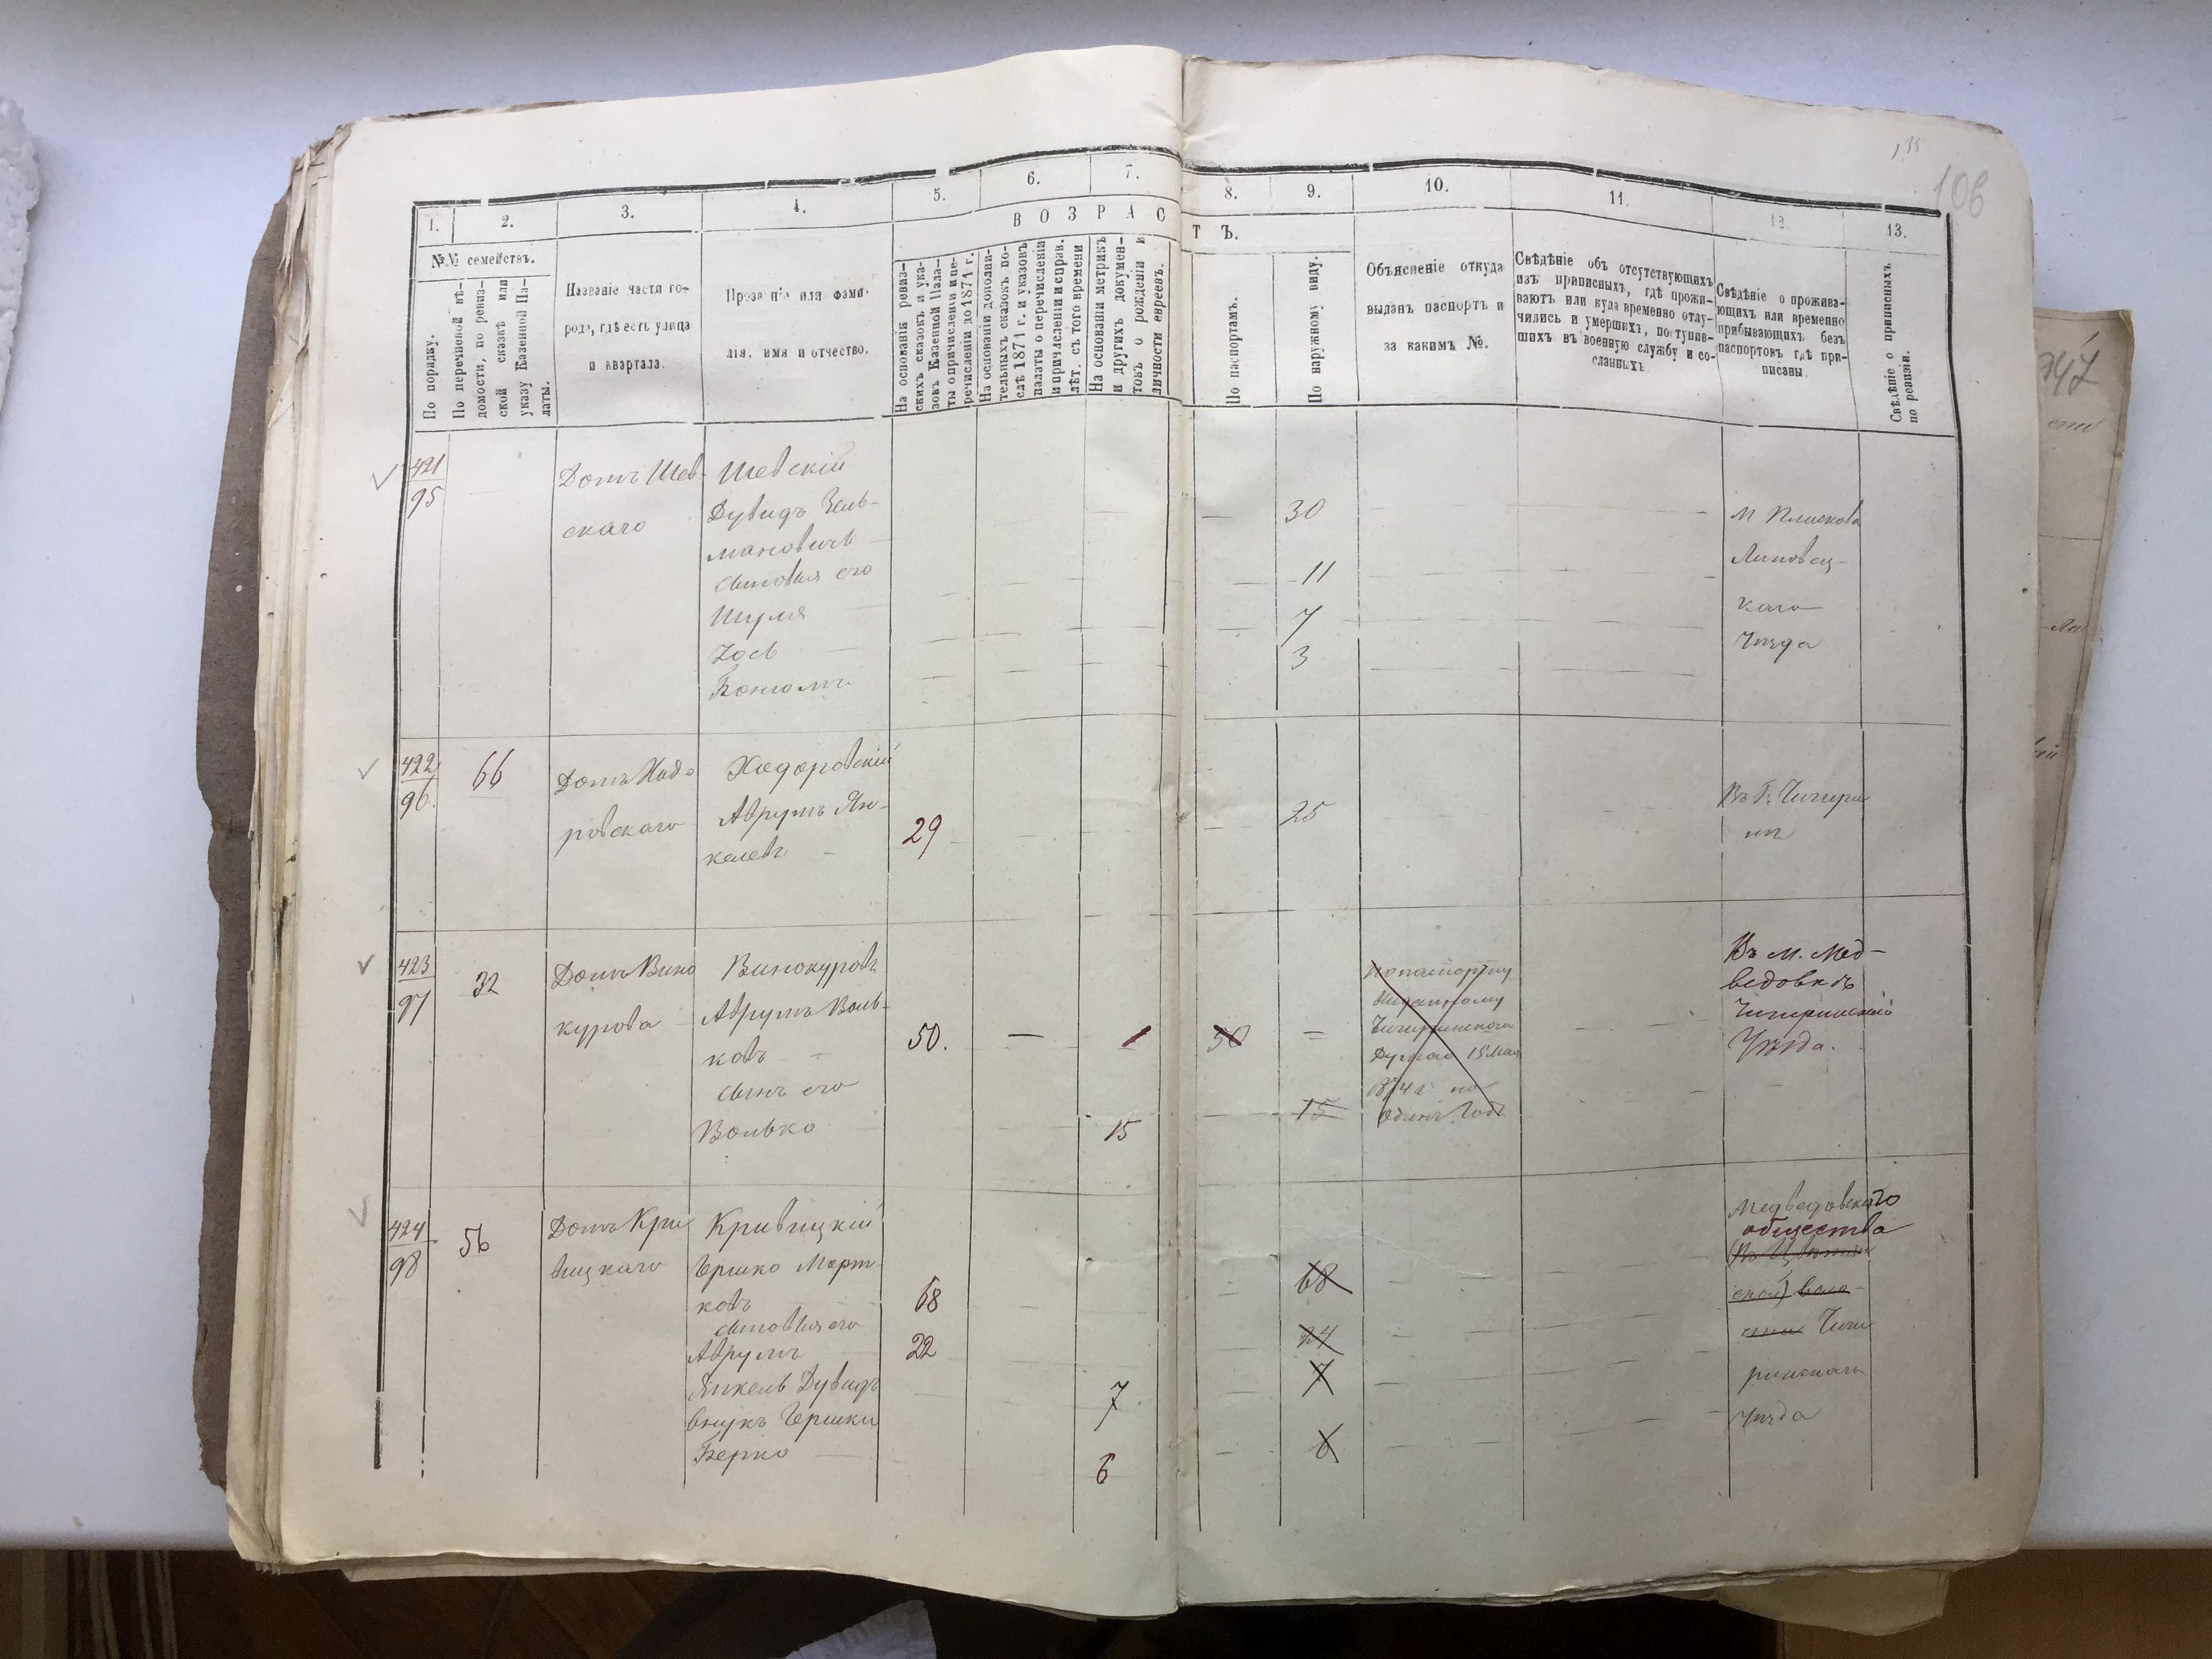 135
106
1.
2.
3.
4.
5.
6.
7.
8.
9.
10.
11.
12.
13.
ВОЗРАСТЪ.
№№ семействъ.
По порядку.
По перечневой вѣ-
домости, по ревиз-
ской сказкѣ или
указу Казенной Па-
латы.
Названіе части го-
рода, гдѣ есть улица
и квартала.
Прозваніе или фами-
лія, имя и отчество.
На основаніи ревиз-
скихъ сказокъ и ука-
зовъ Казенной Пала-
ты о причисленіи и пе-
речисленіи до 1874 г.
На основаніи дополни-
тельныхъ сказокъ по-
слѣ 1874 г. и указовъ
палаты о перечисленіи
и причисленіи и справ.
лѣт. съ того времени
На основаніи метрикъ
и другихъ докумен-
товъ о рожденіи и
личности евреевъ.
По паспортамъ.
По наружному виду.
Объясненіе откуда
выданъ паспортъ и
за какимъ №.
Свѣдѣніе объ отсутствующихъ
изъ приписныхъ, гдѣ прожи-
ваютъ или куда временно отлу-
чились и умершихъ, поступив-
шихъ въ военную службу и со-
сланныхъ
Свѣдѣніе о прожива-
ющихъ или временно
прибывающихъ безъ
паспортовъ гдѣ при-
писаны.
Свѣдѣніе о приписныхъ
по ревизіи.
421
95
Домъ Шев-
скаго
Шевскій
Дувидъ Зель-
мановичъ
30
Сыновья его
Шуля
11
Іось
7
Бенюмъ
3
м Плискова
Липовец-
каго
Уезда
422
96.
66
Домъ Ходо
ровскаго
Ходоровскій
Аврумъ Ян-
келевъ
29
25
Въ Г. Чигири
нѣ
423
97
32
Домъ Вино
курова
Винокуровъ
Аврумъ Воль-
ковъ
50.
1
50
сынъ его
Волько
15
15
по паспорту
выданному
Чигиринскою
Думою 15 Мая
1874 г. на
одинъ Годъ
Въ м. Мед-
ведовкѣ
Чигиринскаго
Уѣзда.
424
98
56
Домъ Кри
вицкаго
Кривицкій
Гершко Морт
ковъ
68
68
сыновья его
Аврумъ
22
24
Янкель Дувидъ
7
7
внукъ Гершки
Берко
6
6
Медведовскаго
общества
Чиги
ринскаго
Уезда